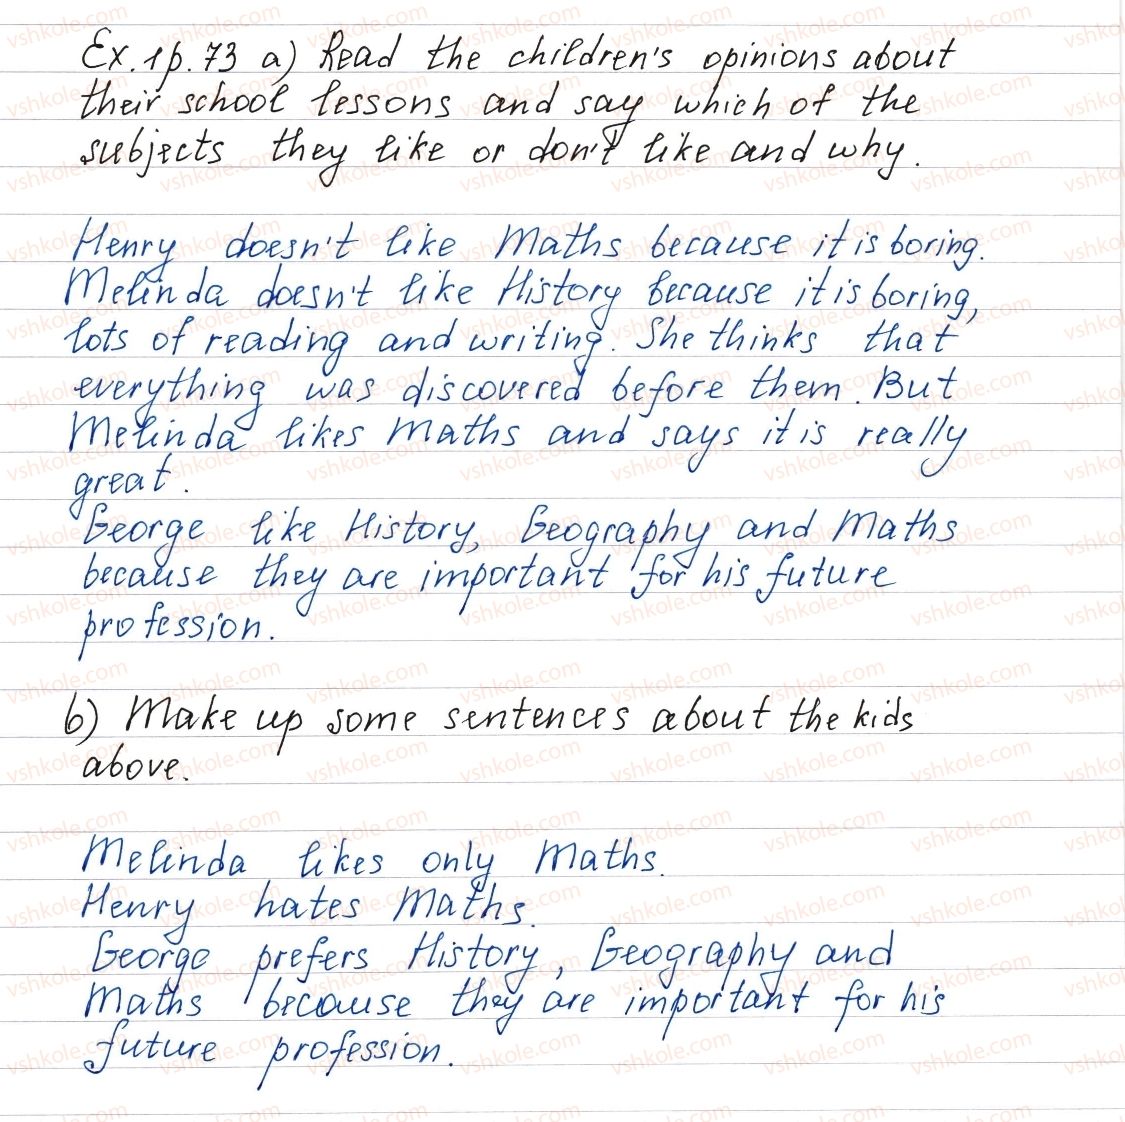 Ex. 1 p. 73 a) Read the children's opinions about
their school lessons and say which of the
subjects they like or don't like and why.
Henry doesn't like Maths because it is boring.
Melinda doesn't like History because it is boring,
lots of reading and writing. She thinks that
everything was discovered before them. But
Melinda likes Maths and says it is really
great.
George like History, Geography and Maths
because they are important for his future
profession.
b) Make up some sentences about the kids
above.
Melinda likes only Maths.
Henry hates Maths.
George prefers History, Geography and
Maths because they are important for his
future profession.
vshkole.com